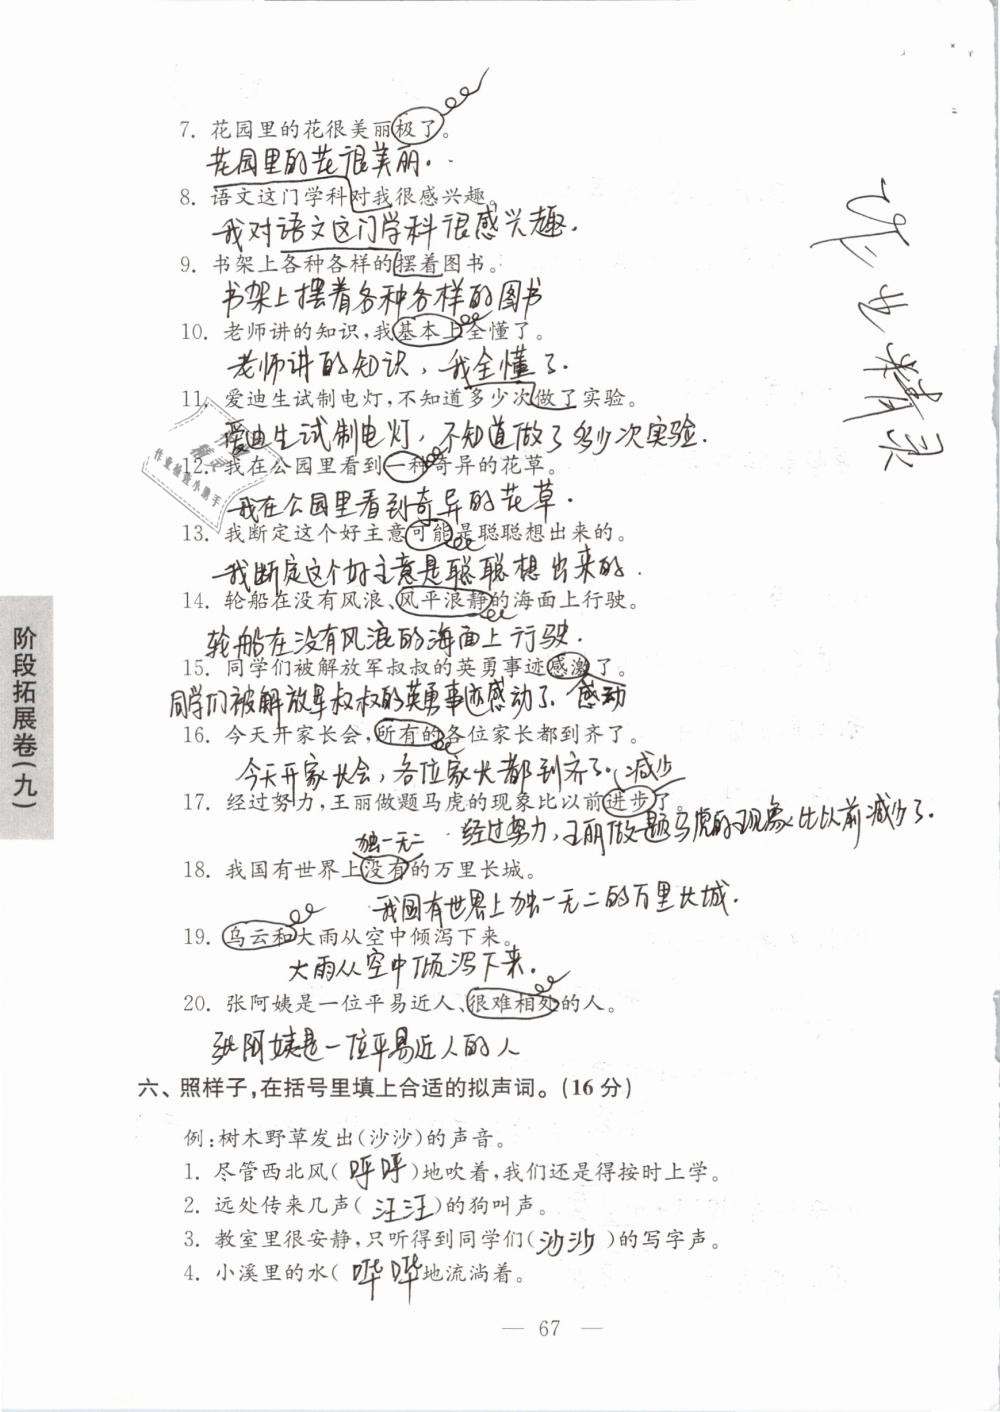 7. 花园里的花很美丽极了。
花园里的花很美丽.
8. 语文这门学科对我很感兴趣。
我对语文这门学科很感兴趣.
9. 书架上各种各样的摆着图书。
书架上摆着各种各样的图书
10. 老师讲的知识,我基本上全懂了。
老师讲的知识,我全懂了.
11. 爱迪生试制电灯,不知道多少次做了实验。
爱迪生试制电灯,不知道做了多少次实验.
12. 我在公园里看到一种奇异的花草。
我在公园里看到奇异的花草.
13. 我断定这个好主意可能是聪聪想出来的。
我断定这个好主意是聪聪想出来的.
14. 轮船在没有风浪、风平浪静的海面上行驶。
轮船在没有风浪的海面上行驶.
15. 同学们被解放军叔叔的英勇事迹感激了。
同学们被解放军叔叔的英勇事迹感动了. 感动
16. 今天开家长会,所有的各位家长都到齐了。
今天开家长会,各位家长都到齐了. 减少
17. 经过努力,王丽做题马虎的现象比以前进步了。
独一无二 经过努力,王丽做题马虎的现象比以前减少了.
18. 我国有世界上没有的万里长城。
我国有世界上独一无二的万里长城.
19. 乌云和大雨从空中倾泻下来。
大雨从空中倾泻下来.
20. 张阿姨是一位平易近人、很难相处的人。
张阿姨是一位平易近人的人
六、照样子,在括号里填上合适的拟声词。(16 分)
例:树木野草发出(沙沙)的声音。
1. 尽管西北风(呼呼)地吹着,我们还是得按时上学。
2. 远处传来几声(汪汪)的狗叫声。
3. 教室里很安静,只听得到同学们(沙沙)的写字声。
4. 小溪里的水(哗哗地流淌着。
— 67 —
阶段拓展卷(九)
作业检查小助手